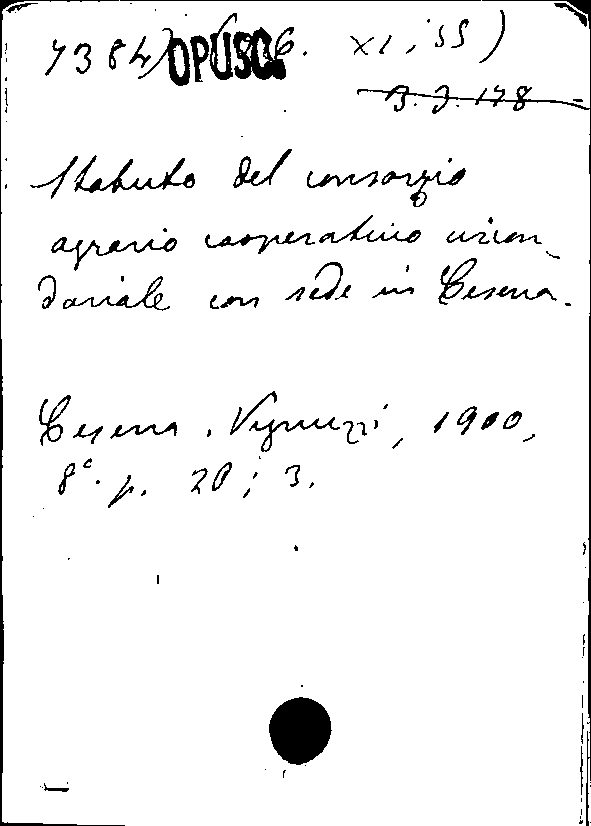 7384) OPUSC. XI, 55)
3. J. 178
Statuto del consorzio
agrario cooperativo circon_
dariale con sede in Cesena.
Cesena. Vignuzzi, 1900,
8°. p. 20; 3.